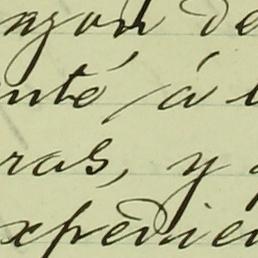 nzon de
nté, á l
ras, y
xpedien